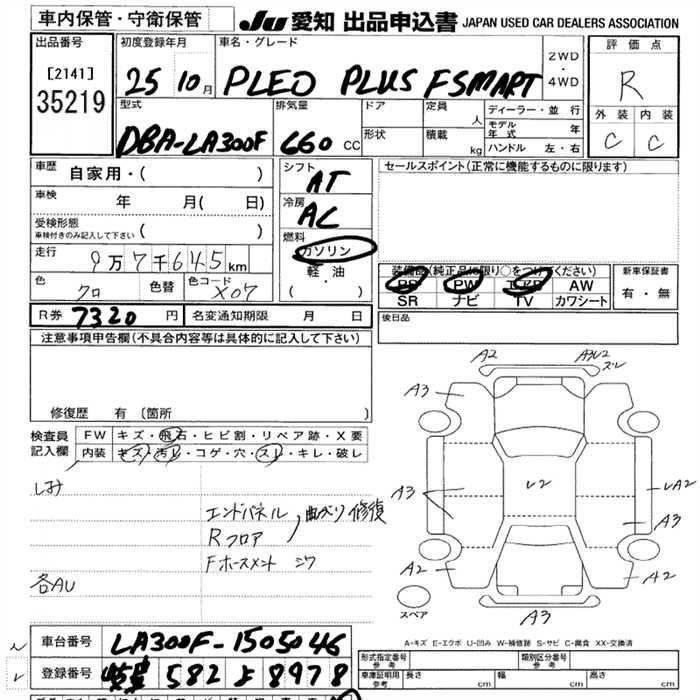 車内保管・守衛保管
JU 愛知 出品申込書 JAPAN USED CAR DEALERS ASSOCIATION
出品番号
[2141]
35219
初度登録年月
25 10月
車名・グレード
PLEO PLUS FSMART
2WD
・
4WD
評価点
R
外装 内装
C C
型式
DBA-LA300F
排気量
660 CC
ドア
形状
定員
人
積載
kg
ディーラー・並行
モデル年式 年
ハンドル 左・右
車歴
自家用・( )
車検
年 月( 日)
受検形態
車検付きのみ記入して下さい ( )
走行
9万7千645km
色
クロ
色替
色コード
X07
シフト
AT
冷房
AC
燃料
ガソリン
・
軽油
・
( )
セールスポイント(正常に機能するものに限ります)
装備品(純正品に限り○をつけてください)
PS PW エアB AW
SR ナビ TV カワシート
新車保証書
有・無
R券 7320 円
名変通知期限 月 日
後日品
注意事項申告欄(不具合内容等は具体的に記入して下さい)
修復歴 有 〔箇所 〕
検査員
記入欄
FW キズ・飛石・ヒビ割・リペア跡・X要
内装 キズ・汚レ・コゲ・穴・スレ・キレ・破レ
しみ
エンドパネル
Rフロア
曲がり修復
Fホースメント シワ
各AU
A2
A3U2
ズレ
A3
U2
A3
UA2
A3
A2
A2
A3
スペア
A-キズ E-エクボ U-凹み W-補修跡 S-サビ C-腐食 XX-交換済
車台番号 LA300F-1505046
登録番号 582 よ 8978
形式指定番号
参考
類別区分番号
参考
車庫証明用
参考
長さ cm 幅 cm 高さ cm